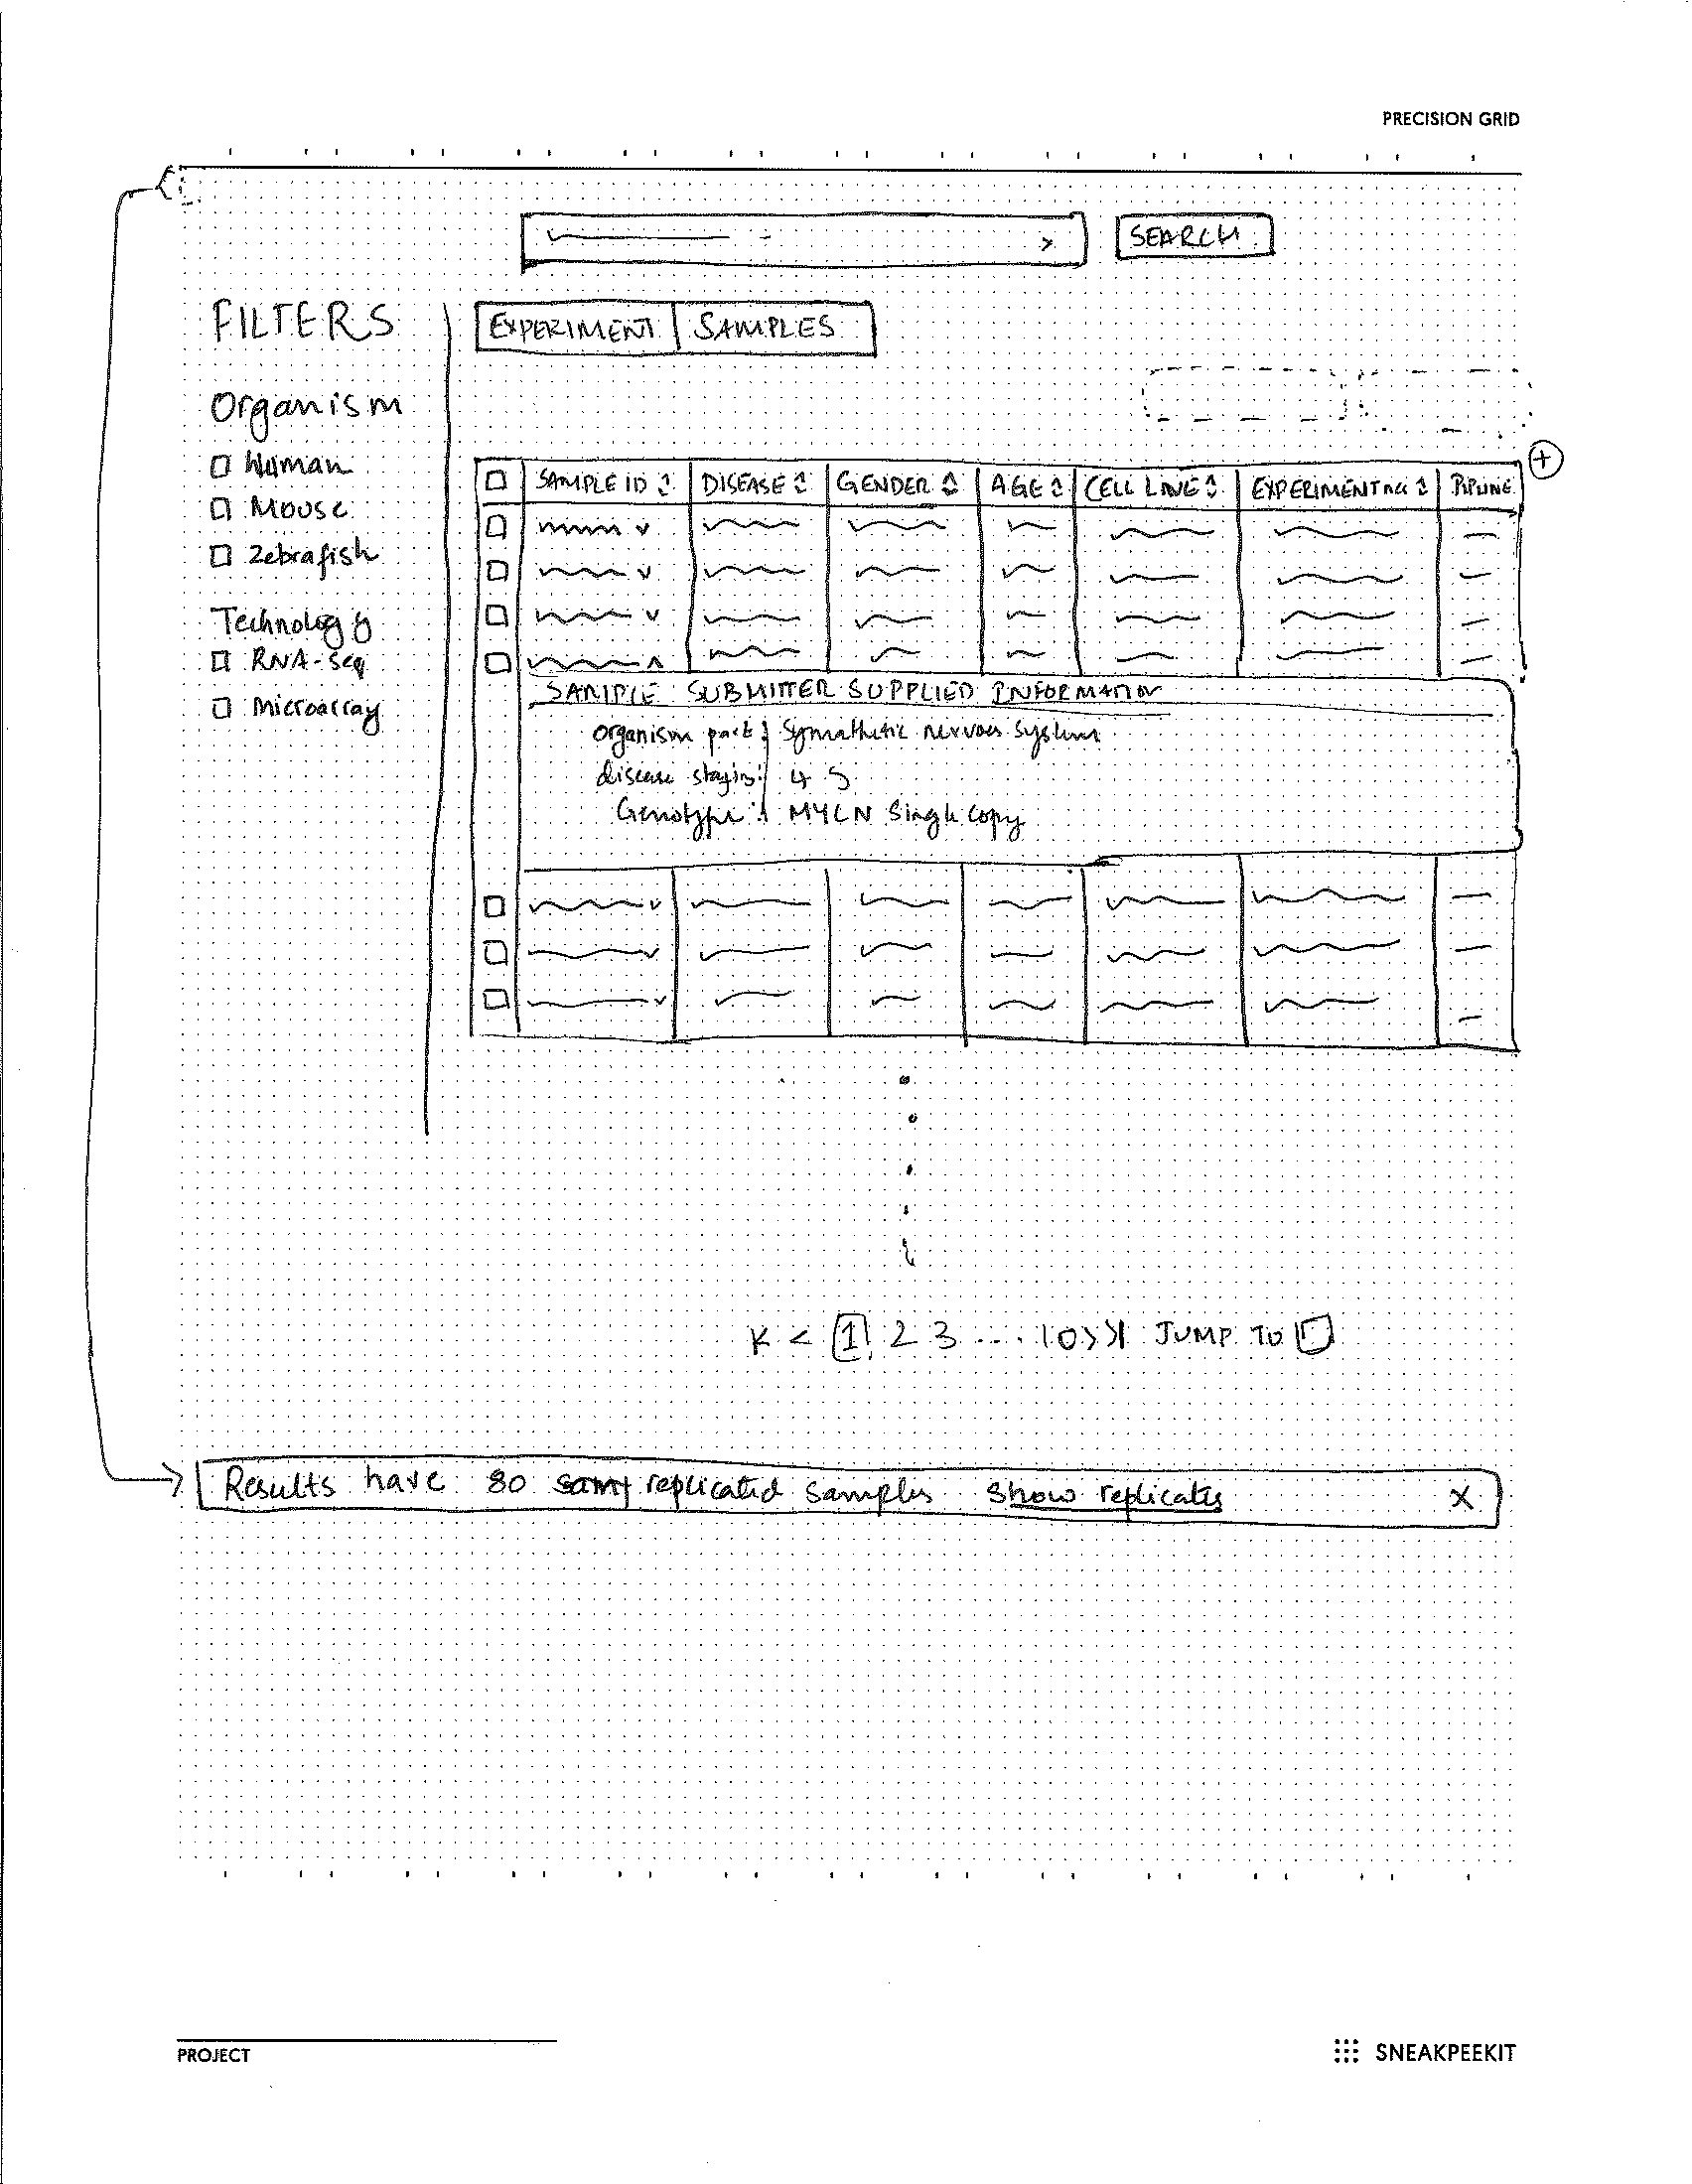 PRECISION GRID
SEARCH
FILTERS
EXPERIMENT SAMPLES
Organism
Human
Mouse
Zebrafish
Technology
RNA-seq
Microarray
SAMPLE ID DISEASE GENDER AGE CELL LINE
SAMPLE SUBMITTER SUPPLIED INFORMATION
organism part: Symathetic nervous system
disease staging: 4 S
Genotype: MYCN Single copy
K < 1 2 3 .... 10 > >| JUMP TO
Results have 80 replicated samples Show replicates X
PROJECT
SNEAKPEEKIT